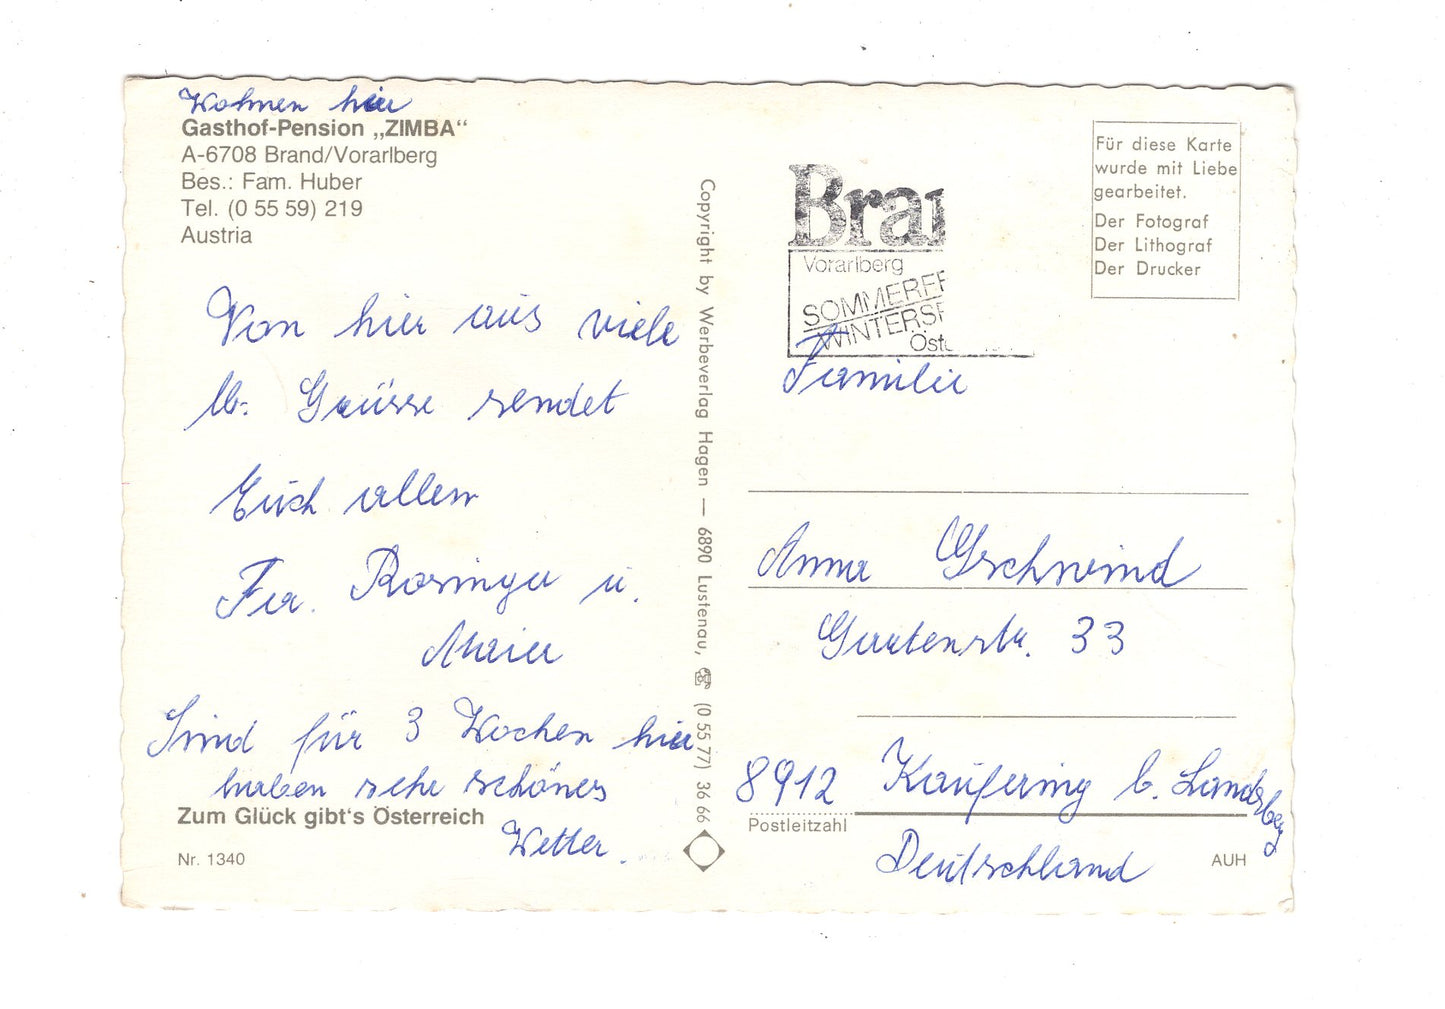 Wohnen hier
Gasthof-Pension „ZIMBA“
A-6708 Brand/Vorarlberg
Bes.: Fam. Huber
Tel. (0 55 59) 219
Austria
Von hier aus viele
lb. Grüsse sendet
Euch allen
Fa. Rosinger u.
Maier
Sind für 3 Wochen hier
haben sehr schönes
Wetter.
Zum Glück gibt's Österreich
Nr. 1340
Copyright by Werbeverlag Hagen — 6890 Lustenau, ☎ (0 55 77) 36 66
Bran
Vorarlberg
SOMMERFR
WINTERSP
Öste
Für diese Karte
wurde mit Liebe
gearbeitet.
Der Fotograf
Der Lithograf
Der Drucker
Familie
Anna Gschwind
Gartenstr. 33
8912 Kaufering b. Landsberg
Postleitzahl
Deutschland
AUH